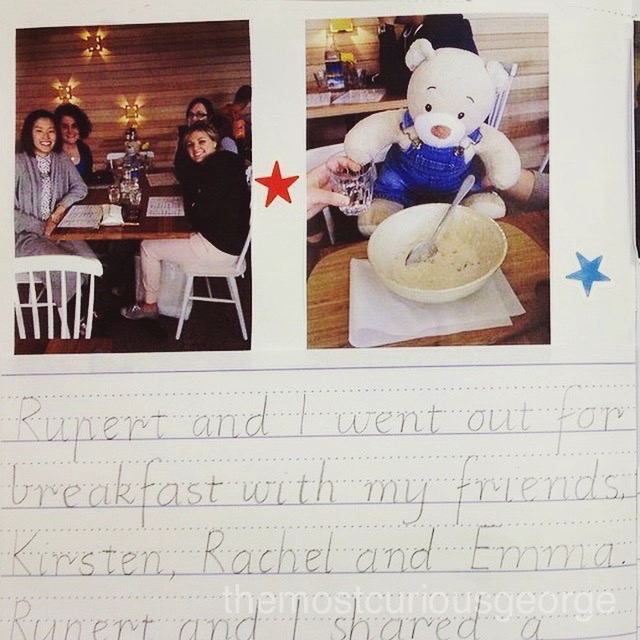 Rupert and I went out for
breakfast with my friends,
Kirsten, Rachel and Emma.
themostcuriousgeorge
Rupert and I shared a